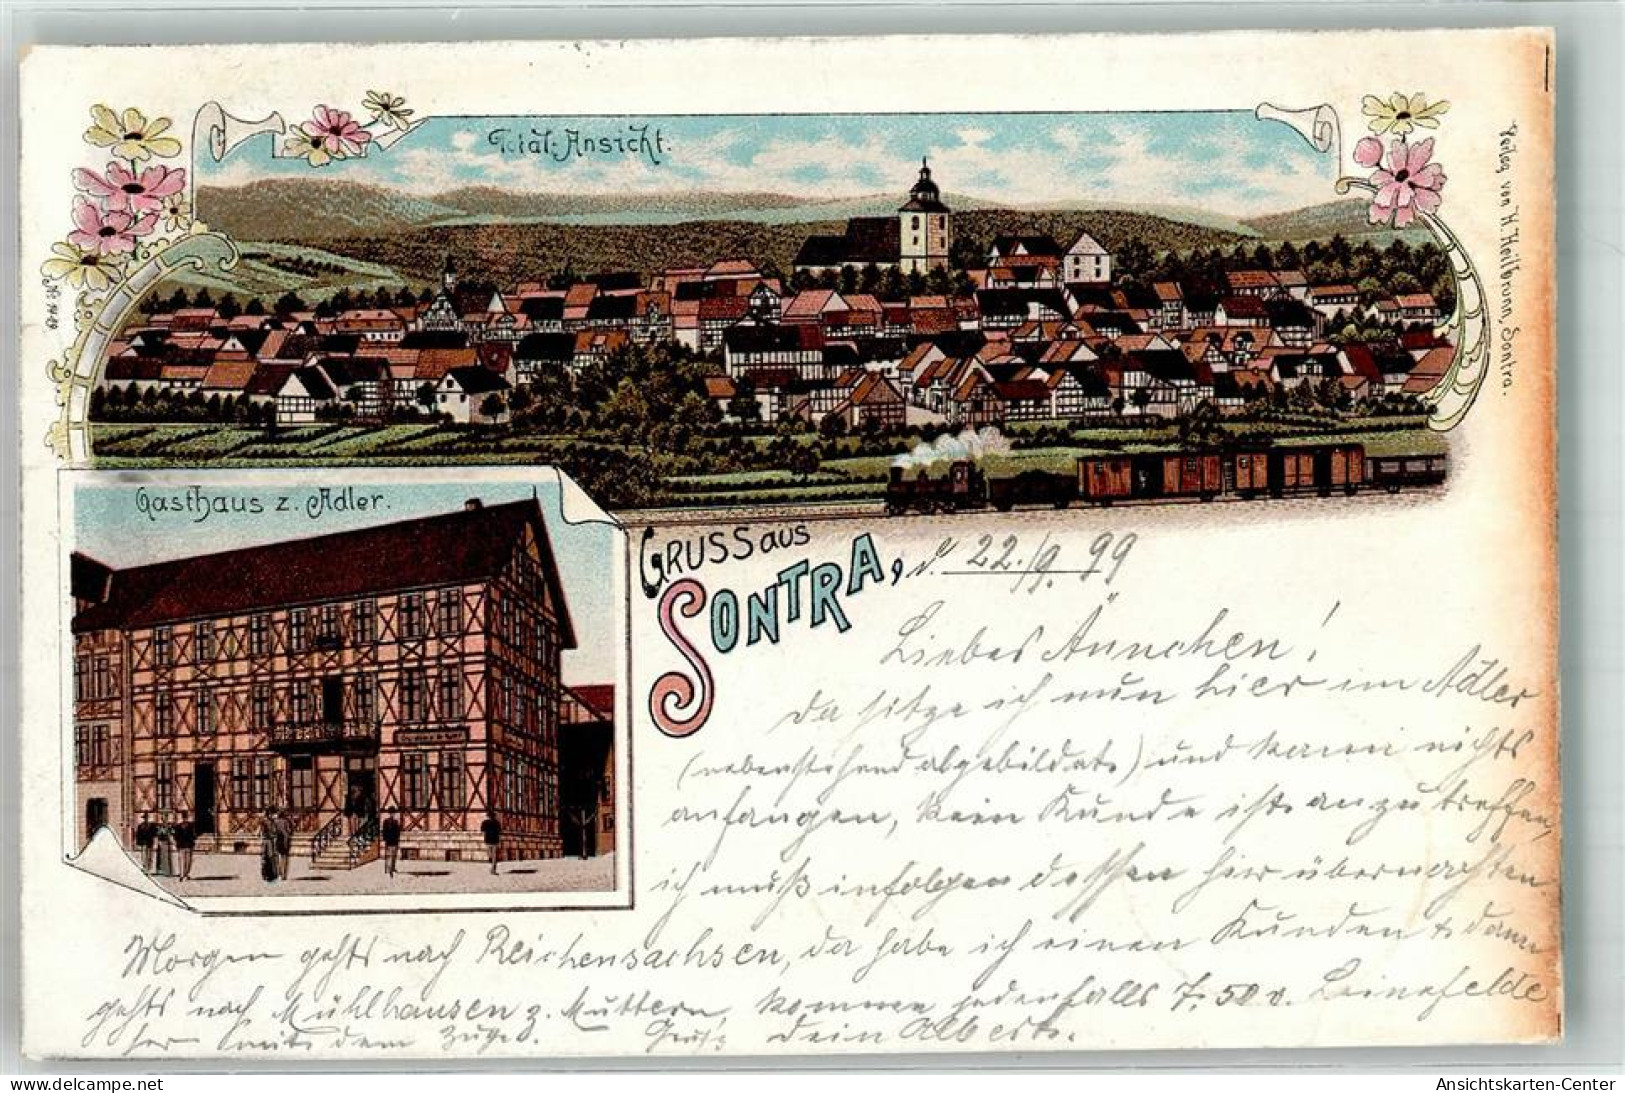 Total-Ansicht.
Verlag von H. Heilbrunn, Sontra.
Gasthaus z. Adler.
GRUSS aus
SONTRA, d. 22./9. 99
Liebes Ännchen!
da sitze ich nun hier im Adler
(nebenstehend abgebildet) und kann nichts
anfangen, kein Kunde ist anzutreffen,
ich muß infolgen dessen hier übernachten.
Morgen gehts nach Reichensachsen, da habe ich einen Kunden & dann
gehts nach Mühlhausen z. Muttern, komme jedenfalls 7.50 v. Leinefelde
her mit dem Zuge. Gruß dein Albert.
delcampe.net
Ansichtskarten-Center